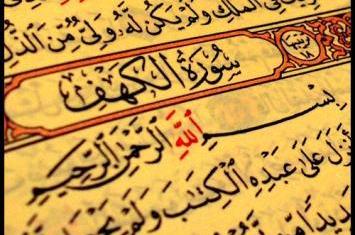 فِي ٱلْمُلْكِ وَلَمْ يَكُن لَّهُۥ وَلِيٌّ مِّنَ ٱلذُّلِّ
ترتيبها ١٨
سُورَةُ الْكَهْفِ
بِسْمِ ٱللَّهِ ٱلرَّحْمَٰنِ ٱلرَّحِيمِ
أَنزَلَ عَلَىٰ عَبْدِهِ ٱلْكِتَٰبَ وَلَمْ يَجْعَل